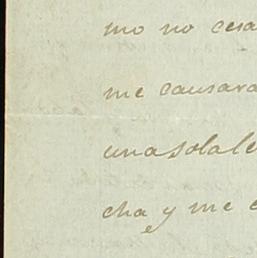 mo no cesa
me causara
una sola le
cha y me